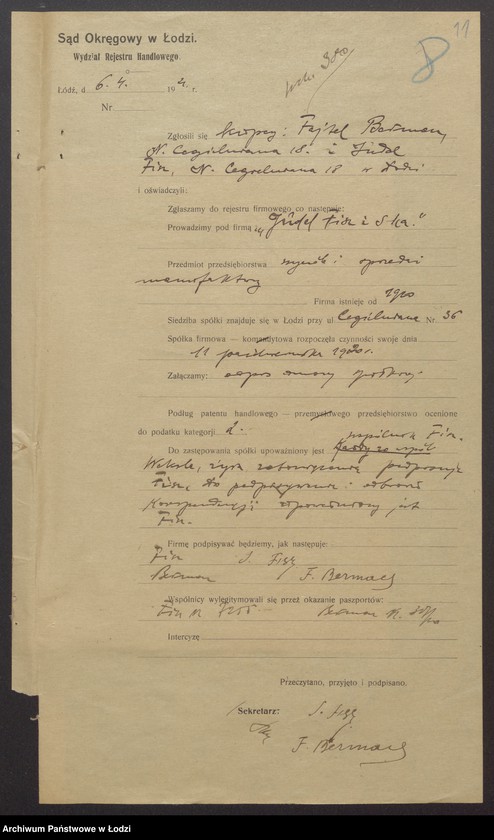 11
8
Sąd Okręgowy w Łodzi.
Wydział Rejestru Handlowego.
Łódź, d. 6.4. 192 r.
Nr.
Zgłosili się kupcy: Fajtel Berman,
N. Cegielniana 18. i Judel
Fisz, N. Cegielniana 18 w Łodzi
i oświadczyli:
Zgłaszamy do rejestru firmowego co następuje:
Prowadzimy pod firmą „Judel Fisz i S-ka."
Przedmiot przedsiębiorstwa wyrób i sprzedaż
manufaktury
Firma istnieje od 1920
Siedziba spółki znajduje się w Łodzi przy ul Cegielniana Nr. 36
Spółka firmowa — komandytowa rozpoczęła czynności swoje dnia
11 października 1920 r.
Załączamy: odpis umowy spółkowej.
Podług patentu handlowego — przemysłowego przedsiębiorstwo ocenione
do podatku kategorji 2.
wspólnik Fisz.
Do zastępowania spółki upoważniony jest
Weksle, żyra podpisuje
Fisz, do podpisywania i odbioru
korespondencji upoważniony jest
Fisz.
Firmę podpisywać będziemy, jak następuje:
Fisz
Berman F. Berman
Wspólnicy wylegitymowali się przez okazanie paszportów:
Fisz N Berman N.
Intercyzę
Przeczytano, przyjęto i podpisano.
Sekretarz:
F. Berman
Archiwum Państwowe w Łodzi